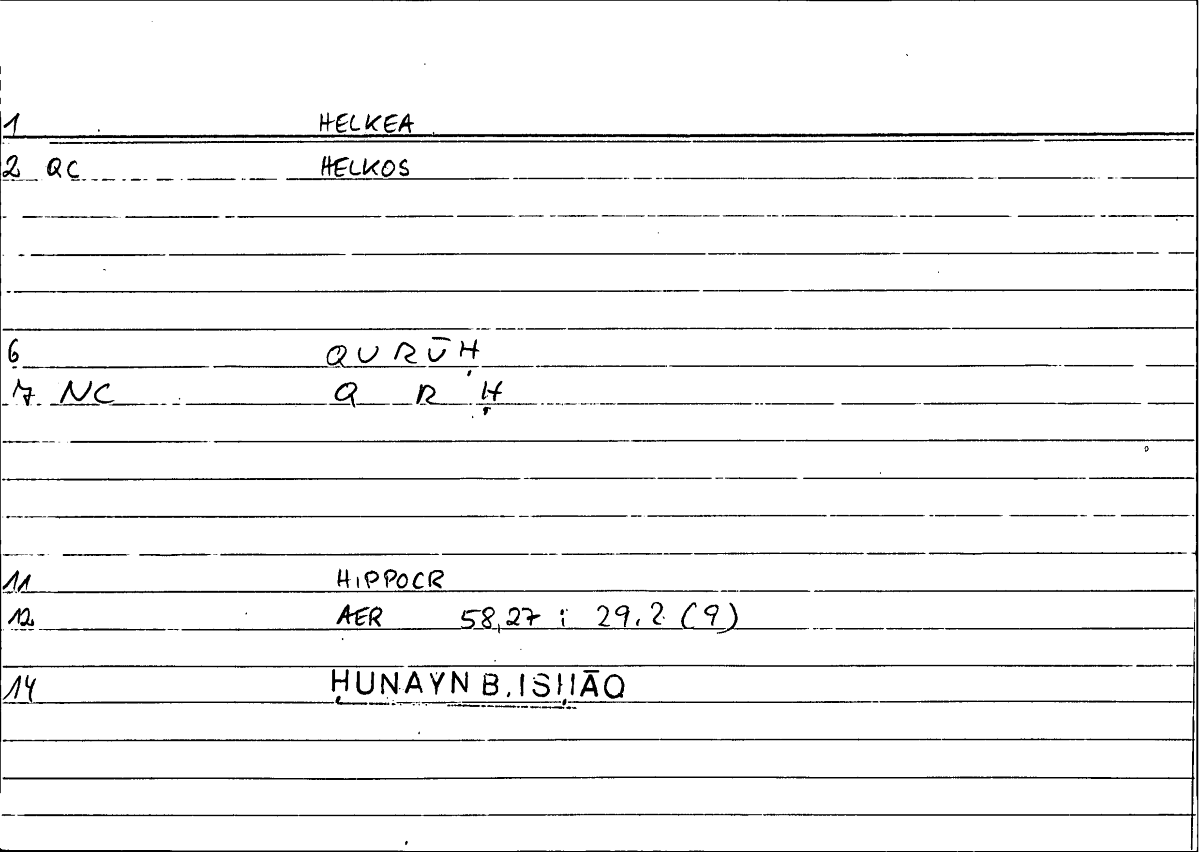 1 HELKEA
2 QC HELKOS
6 QURŪḤ
7 NC Q R Ḥ
11 HIPPOCR
12 AER 58,27 ; 29.2 (9)
14 ḤUNAYN B. ISḤĀQ